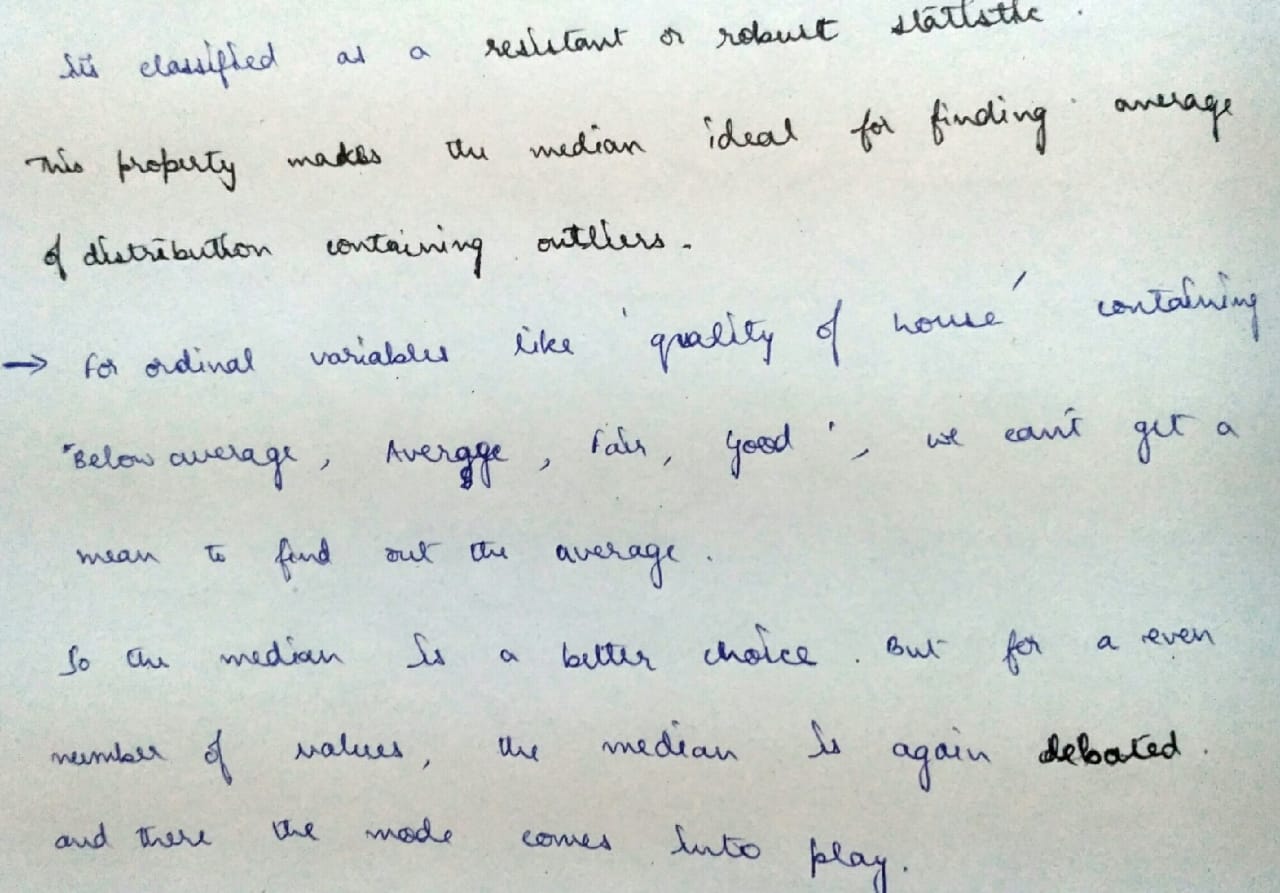 Its classified as a resistant or robust statistic.
This property makes the median ideal for finding average
of distribution containing outliers.
→ For ordinal variables like 'quality of house' containing
"Below average, Average, Fair, Good', we can't get a
mean to find out the average.
So the median is a better choice. But for a even
number of values, the median is again debated.
and there the mode comes into play.